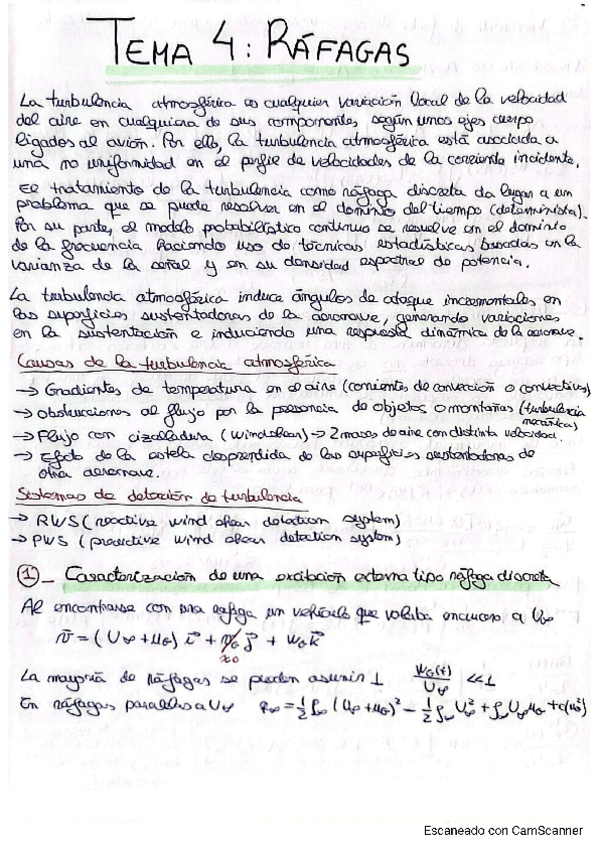 TEMA 4: RÁFAGAS
La turbulencia atmosférica es cualquier variación local de la velocidad
del aire en cualquiera de sus componentes, según unos ejes cuerpo
ligados al avión. Por ello, la turbulencia atmosférica está asociada a
una no uniformidad en el perfil de velocidades de la corriente incidente.
El tratamiento de la turbulencia como ráfaga discreta da lugar a un
problema que se puede resolver en el dominio del tiempo (determinista).
Por su parte, el modelo probabilístico continuo se resuelve en el dominio
de la frecuencia haciendo uso de técnicas estadísticas basadas en la
varianza de la señal y en su densidad espectral de potencia.
La turbulencia atmosférica induce ángulos de ataque incrementales en
las superficies sustentadoras de la aeronave, generando variaciones
en la sustentación e induciendo una respuesta dinámica de la aeronave.
Causas de la turbulencia atmosférica
→ Gradientes de temperatura en el aire (corrientes de convección o convectivas)
→ Obstrucciones al flujo por la presencia de objetos o montañas (turbulencia mecánica)
→ Flujo con cizalladura (windshear) → 2 masas de aire con distinta velocidad.
→ Efecto de la estela desprendida de las superficies sustentadoras de
otra aeronave.
Sistemas de detección de turbulencia
→ RWS (reactive wind shear detection system)
→ PWS (predictive wind shear detection system)
① - Caracterización de una excitación externa tipo ráfaga discreta
Al encontrarse con una ráfaga un vehículo que volaba en crucero a U∞
v⃗ = (U∞ + u_G) i⃗ + v_G j⃗ + w_G k⃗
≈0
La mayoría de ráfagas se pueden asumir ⊥ w_G(t)/U∞ ≪ 1
En ráfagas paralelas a U∞ q∞ = 1/2 ρ∞ (U∞ + u_G)² - 1/2 ρ∞ U∞² + ρ∞ U∞ u_G + O(u_G²)
Escaneado con CamScanner